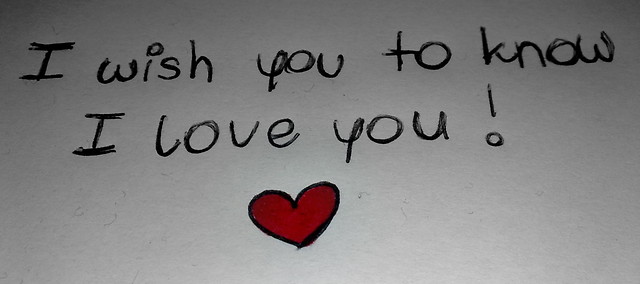 I wish you to know
I love you!